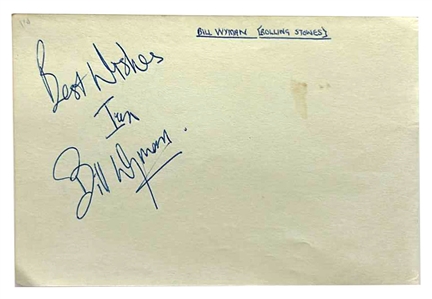 BILL WYMAN (ROLLING STONES)
Best Wishes
Bill Wyman.